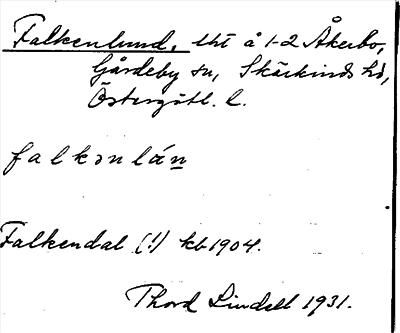 Falkenlund, lht å 1-2 Åkerbo,
Gårdeby sn, Skärkinds hd,
Östergötl. l.
falkənlán
Falkendal (!) kb 1904.
Thord Lindell 1931.